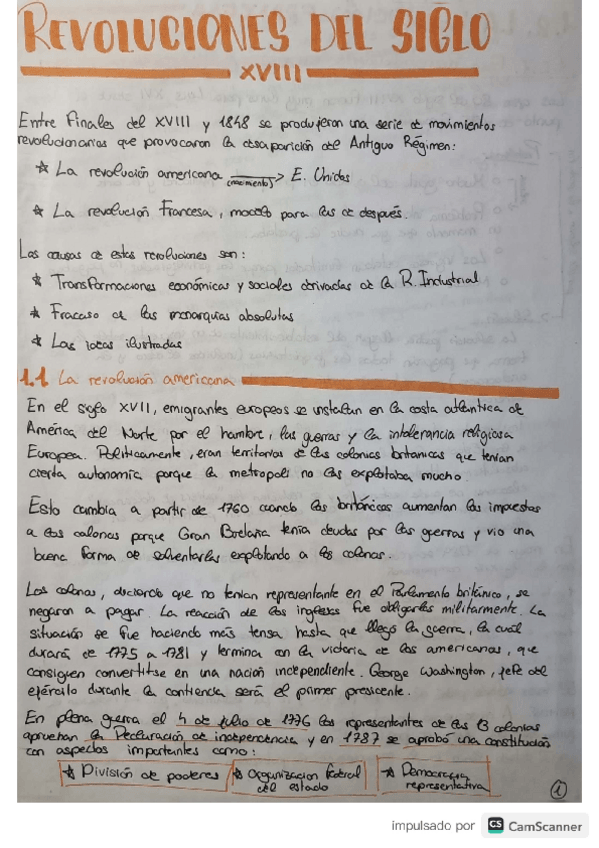 REVOLUCIONES DEL SIGLO
XVIII
Entre finales del XVIII y 1848 se produjeron una serie de movimientos
revolucionarios que provocaron la desaparición del Antiguo Régimen:
☆ La revolución americana (nacimiento)> E. Unidos
☆ La revolución Francesa, modelo para las de después.
Las causas de estas revoluciones son:
☆ Transformaciones económicas y sociales derivadas de la R. Industrial
☆ Fracaso de las monarquías absolutas
☆ Las ideas ilustradas
1.1 La revolución americana
En el siglo XVII, emigrantes europeos se instalan en la costa atlántica de
América del Norte por el hambre, las guerras y la intolerancia religiosa
Europea. Políticamente, eran territorios de las colonias britanicas que tenían
cierta autonomía porque la metropoli no las explotaba mucho.
Esto cambia a partir de 1760 cuando los británicos aumentan los impuestos
a los colonos porque Gran Bretaña tenía deudas por las guerras y vio una
buena forma de solventarlas explotando a los colonos.
Los colonos, diciendo que no tenían representante en el Parlamento británico, se
negaron a pagar. La reacción de los ingleses fue obligarles militarmente. La
situación se fue haciendo más tensa hasta que llegó la guerra, la cuál
durará de 1775 a 1781 y termina con la victoria de los americanos, que
consiguen convertitse en una nación independiente. George Washington, jefe del
ejército durante la contienda será el primer presidente.
En plena guerra el 4 de julio de 1776 los representantes de las 13 colonias
aprueban la Declaración de independencia y en 1787 se aprobó una constitución
con aspectos importantes como:
☆ División de poderes ☆ Organizacion federal del estado ☆ Democracia representativa
1
impulsado por CS CamScanner